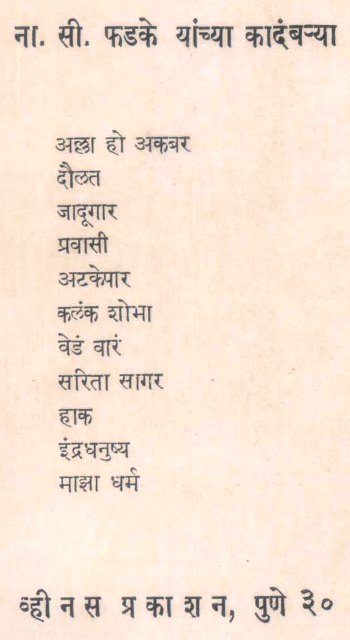 ना. सी. फडके यांच्या कादंबऱ्या
अल्ला हो अकबर
दौलत
जादूगार
प्रवासी
अटकेपार
कलंक शोभा
वेडं वारं
सरिता सागर
हाक
इंद्रधनुष्य
माझा धर्म
व्हीनस प्रकाशन, पुणे ३०